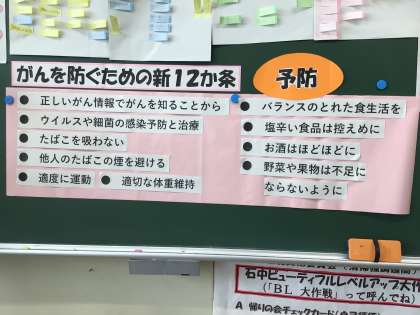 がんを防ぐための新12か条
● 正しいがん情報でがんを知ることから
● ウイルスや細菌の感染予防と治療
● たばこを吸わない
● 他人のたばこの煙を避ける
● 適度に運動 ● 適切な体重維持
予防
● バランスのとれた食生活を
● 塩辛い食品は控えめに
● お酒はほどほどに
● 野菜や果物は不足に
ならないように
石中ビューティフルレベルアップ大作
(「BL 大作戦」って呼んでね)
A 帰りの会チェックカード